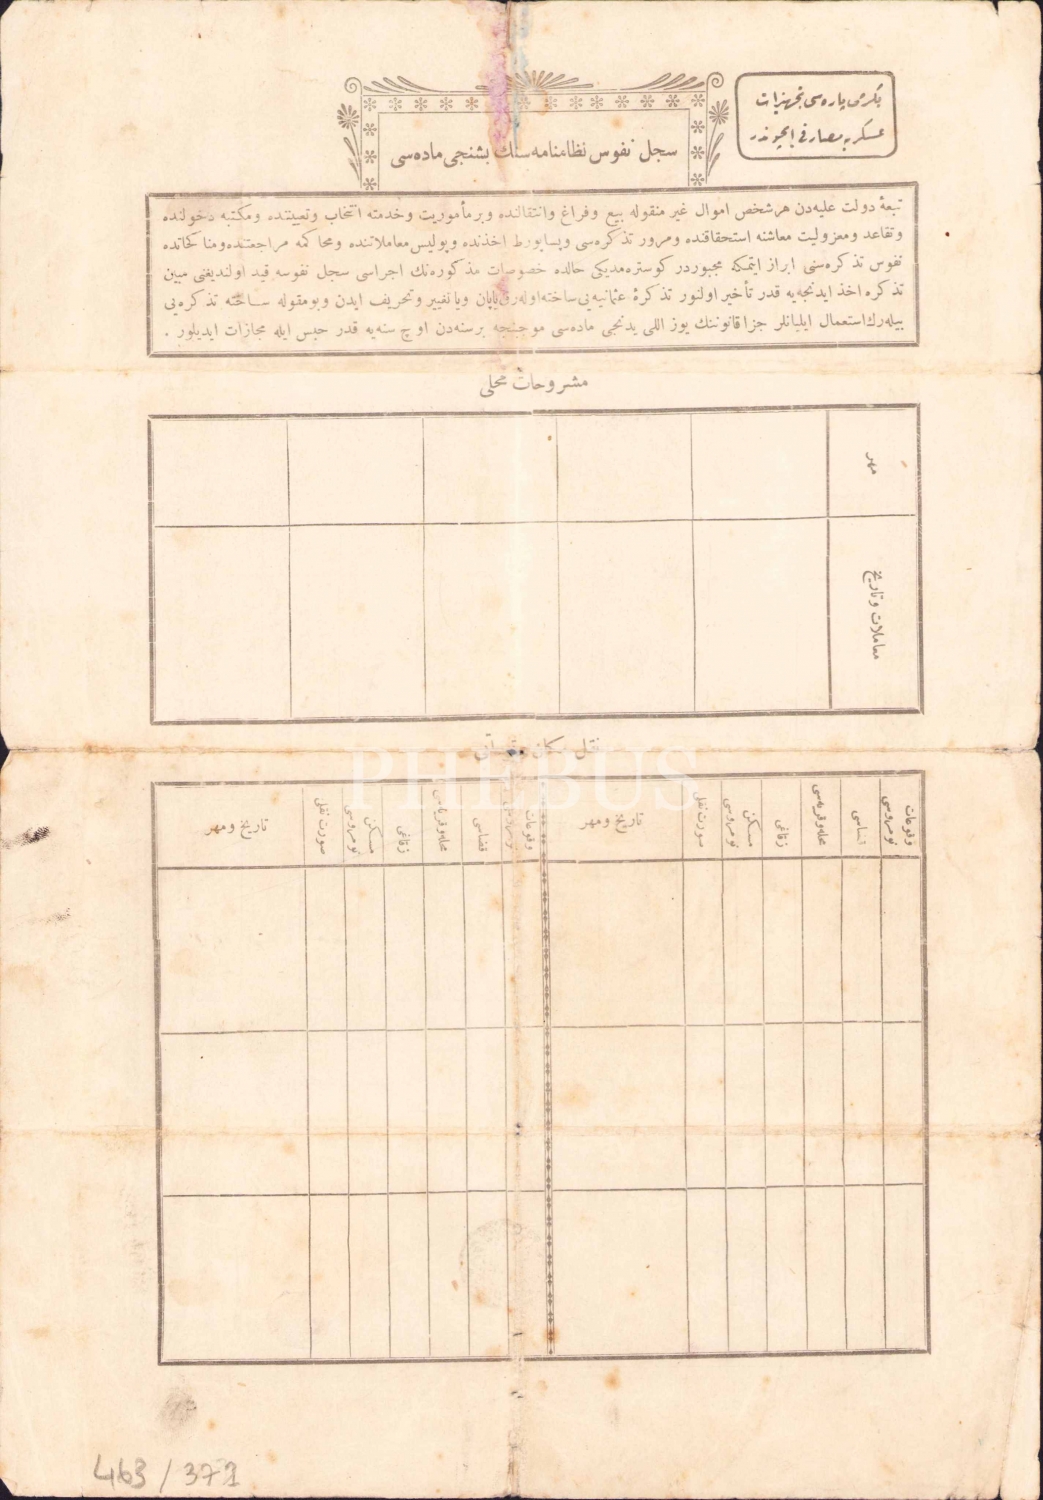 یكرمی پاره‌سی تجهیزات
عسكریه مصارفی ایچوندر
سجل نفوس نظامنامه‌سنك بشنجی ماده‌سی
تبعهٔ دولت علیه‌دن هر شخص اموال غیر منقوله بیع و فراغ و انتقالنده و بر مأموریت و خدمته انتخاب و تعییننده و مكتبه دخولنده
و تقاعد و معزولیت معاشنه استحقاقنده و مرور تذكره‌سی و پساپورط اخذنده و پولیس معاملاتنده و محاكمه مراجعتنده و مناكحاتده
نفوس تذكره‌سنی ابراز ایتمكه مجبوردر كوستره‌مدیكی حالده خصوصات مذكوره‌نك اجراسی سجل نفوسه قید اولندیغنی مبین
تذكره اخذ ایدنجه‌یه قدر تأخیر اولنور تذكرهٔ عثمانیه‌یی ساخته اوله‌رق یاپان ویا تغییر و تحریف ایدن و بو مقوله ساخته تذكره‌یی
بیله‌رك استعمال ایلیانلر جزا قانوننك یوز اللی یدنجی ماده‌سی موجبنجه بر سنه‌دن اوچ سنه‌یه قدر حبس ایله مجازات ایدیلور .
مشروحات محلی
مهر
معاملات و تاریخ
نقل مكان
PHEBUS
وقوعات نومروسی
قضاسی
محله و قریه‌سی
زقاغی
مسكن نومروسی
صورت نقلی
تاریخ و مهر
وقوعات نومروسی
قضاسی
محله و قریه‌سی
زقاغی
مسكن نومروسی
صورت نقلی
تاریخ و مهر
463 / 371